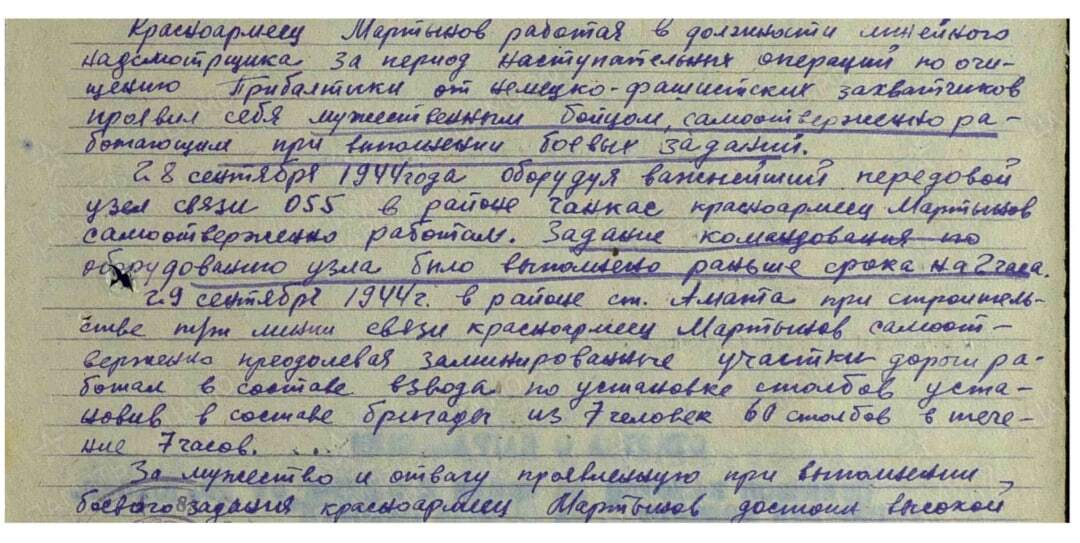 Красноармеец Мартынов работая в должности линейного
надсмотрщика за период наступательных операций по очи-
щению Прибалтики от немецко-фашистских захватчиков
проявил себя мужественным бойцом, самоотверженно ра-
ботающим при выполнении боевых заданий.
28 сентября 1944 года оборудуя важнейший передовой
узел связи 055 в районе Чанкас красноармеец Мартынов
самоотверженно работал. Задание командования по
оборудованию узла было выполнено раньше срока на 2 часа.
29 сентября 1944 г. в районе ст. Амата при строитель-
стве линии связи красноармеец Мартынов самоот-
верженно преодолевая заминированные участки дороги ра-
ботал в составе взвода по установке столбов уста-
новив в составе бригады из 7 человек 60 столбов в тече-
ние 7 часов.
За мужество и отвагу проявленную при выполнении
боевого задания красноармеец Мартынов достоин высокой